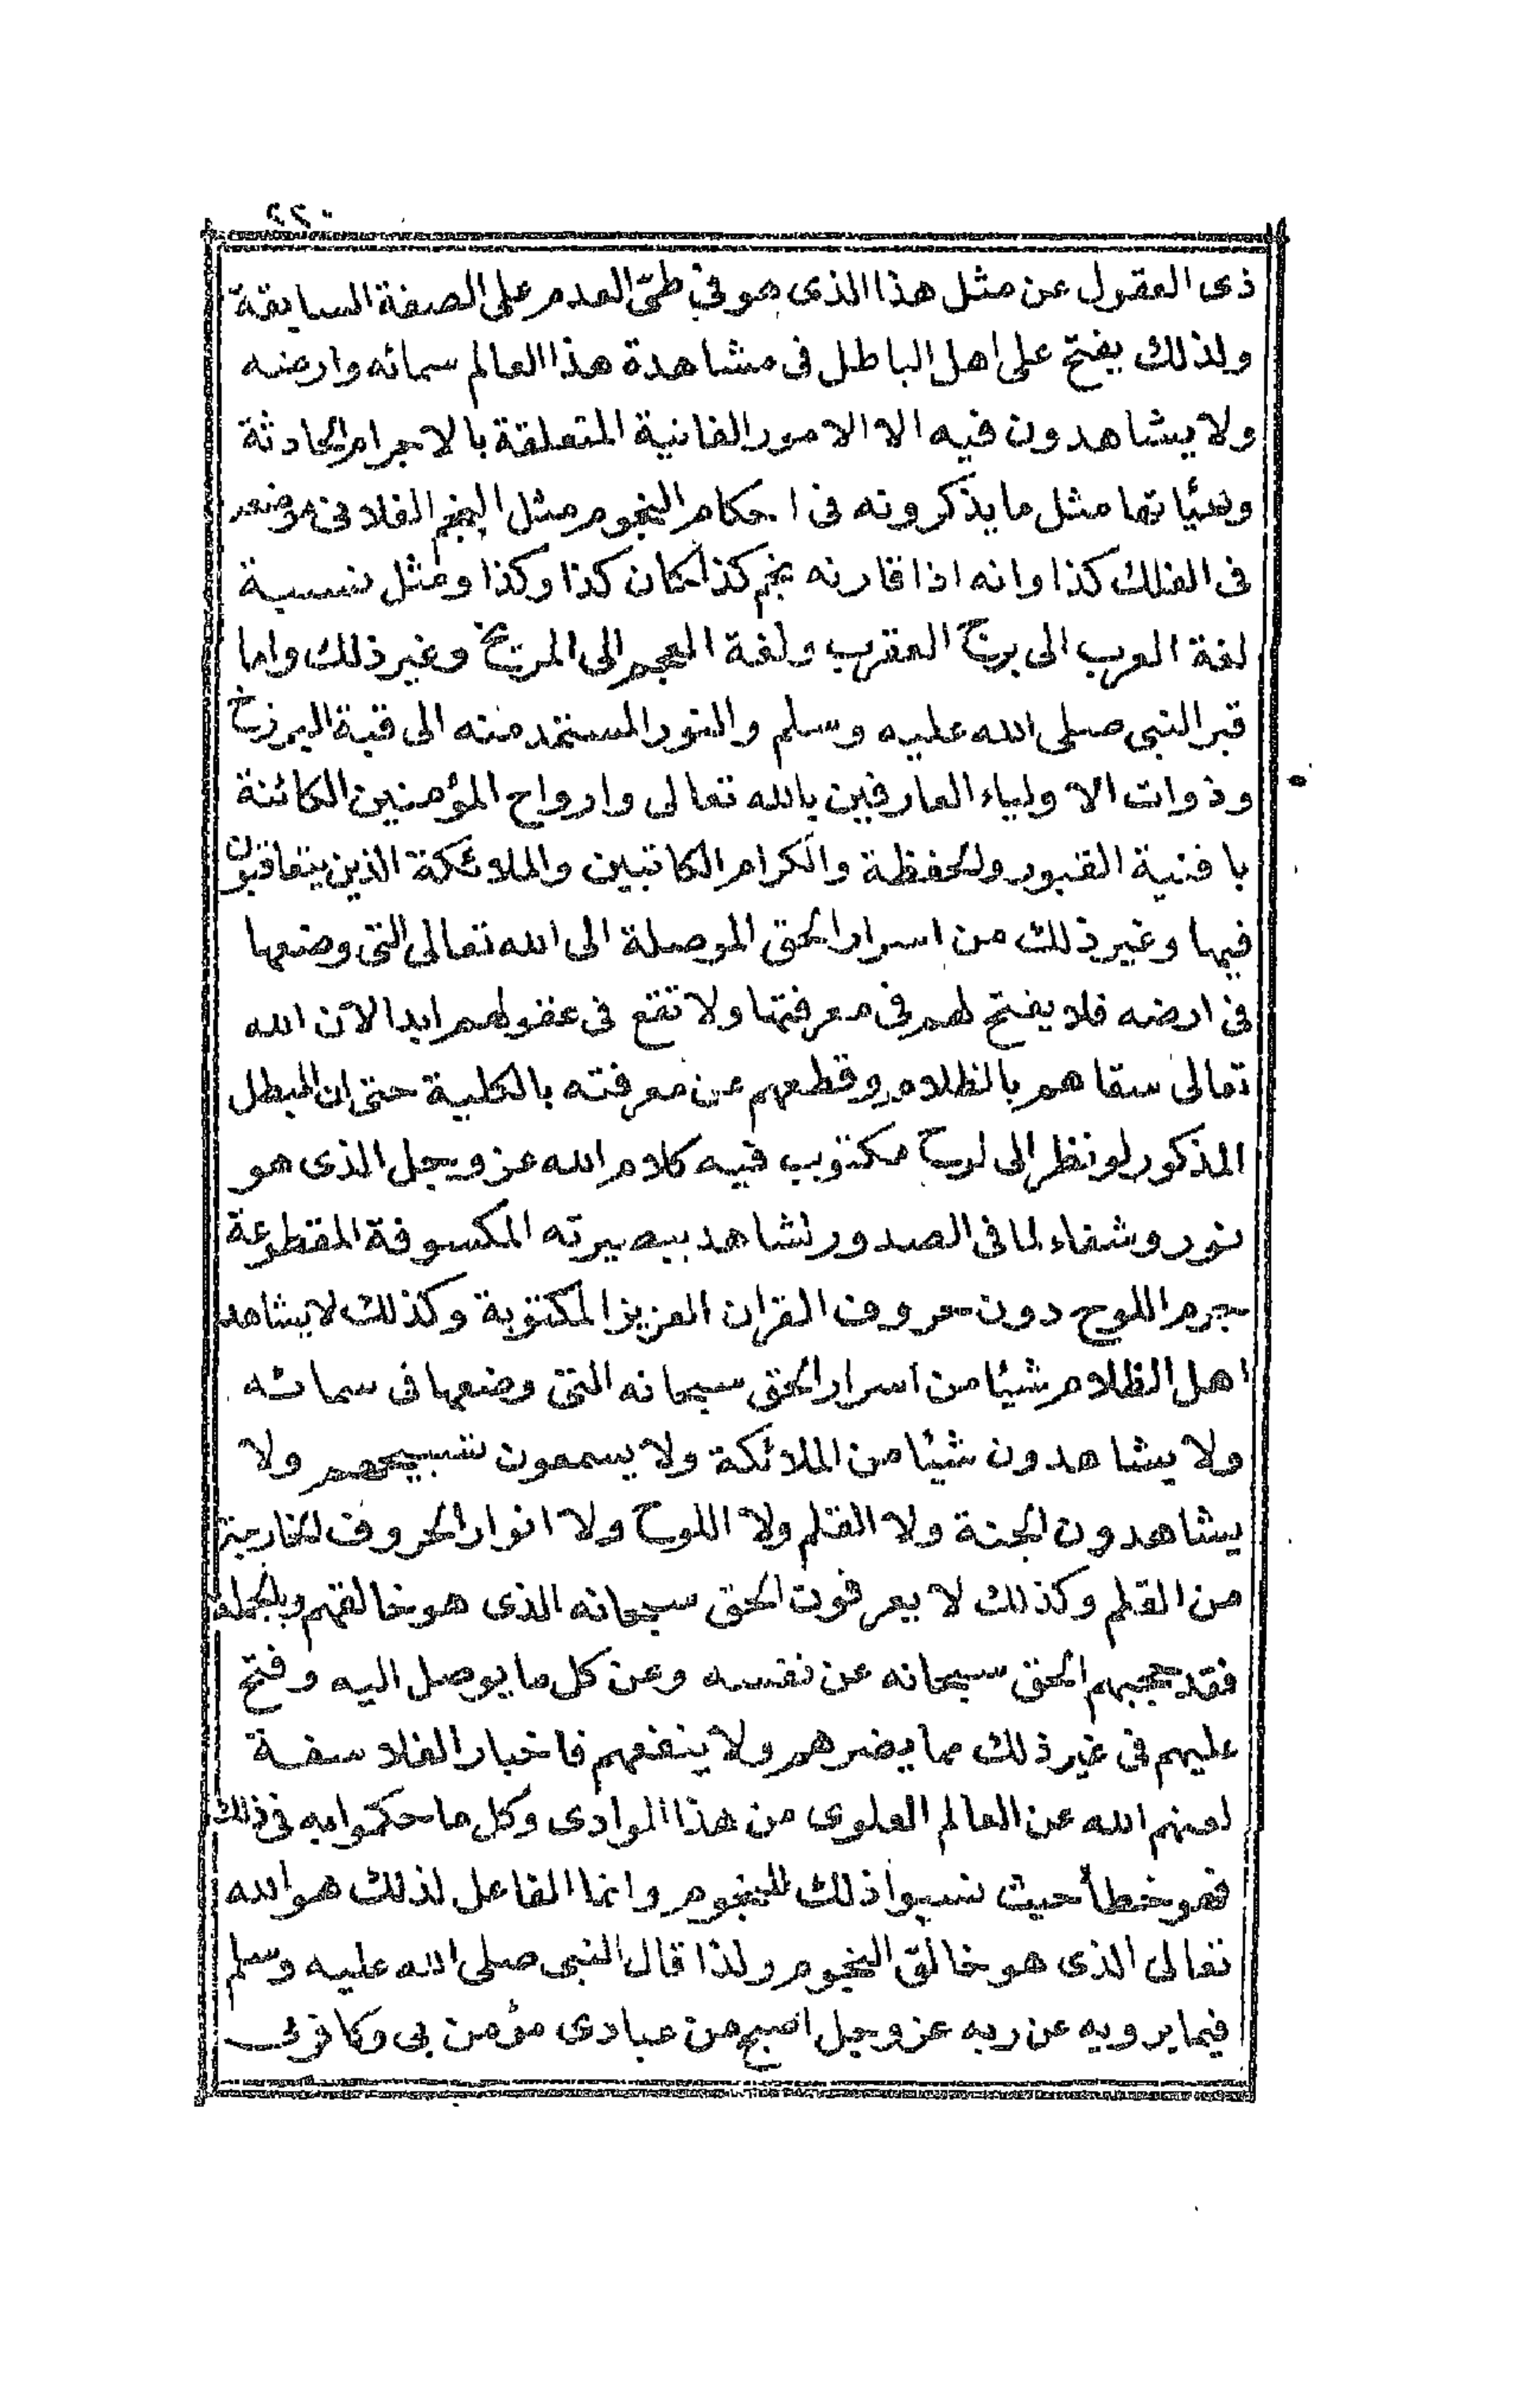 ٢٢٠
ذى العقول عن مثل هذا الذى هو في طيّ العدم على الصفة السابقة
ولذلك يفتح على اهل الباطل فى مشاهدة هذا العالم سمائه وارضه
ولا يشاهدون فيه الا الامور الفانية المتعلقة بالاجرام الحادثة
وهيئاتها مثل ما يذكرونه فى احكام النجوم مثل النجم الفلانى موضعه
فى الفلك كذا وانه اذا قارنه نجم كذا كان كذا وكذا ومثل نسبة
لغة العرب الى برج العقرب ولغة العجم الى المريخ وغير ذلك واما
قبر النبى صلى الله عليه وسلم والنور المستمد منه الى قبة البرزخ
وذوات الاولياء العارفين بالله تعالى وارواح المؤمنين الكائنة
بافنية القبور والحفظة والكرام الكاتبين والملائكة الذين يتعاقبون
فيها وغير ذلك من اسرار الحق الموصلة الى الله تعالى التى وضعها
فى ارضه فلا يفتح لهم فى معرفتها ولا تقع فى عقولهم ابدا لان الله
تعالى سقاهم بالظلام وقطعهم عن معرفته بالكلية حتى ان المبطل
المذكور لو نظر الى لوح مكتوب فيه كلام الله عز وجل الذى هو
نور وشفاء لما فى الصدور لشاهد ببصيرته المكسوفة المقطوعة
جرم اللوح دون حروف القران العزيز المكتوبة وكذلك لا يشاهد
اهل الظلام شيئا من اسرار الحق سبحانه التى وضعها فى سمائه
ولا يشاهدون شيئا من الملائكة ولا يسمعون تسبيحهم ولا
يشاهدون الجنة ولا القلم ولا اللوح ولا انوار الحروف الخارجة
من القلم وكذلك لا يعرفون الحق سبحانه الذى هو خالقهم وبالجملة
فقد حجبهم الحق سبحانه عن نفسه وعن كل ما يوصل اليه وفتح
عليهم فى غير ذلك مما يضرهم ولا ينفعهم فاخبار الفلاسفة
لعنهم الله عن العالم العلوى من هذا الوادى وكل ما حكموا به فى ذلك
فهو خطأ حيث نسبوا ذلك للنجوم وانما الفاعل لذلك هو الله
تعالى الذى هو خالق النجوم ولذا قال النبى صلى الله عليه وسلم
فيما يرويه عن ربه عز وجل اصبح من عبادى مؤمن بى وكافر بى